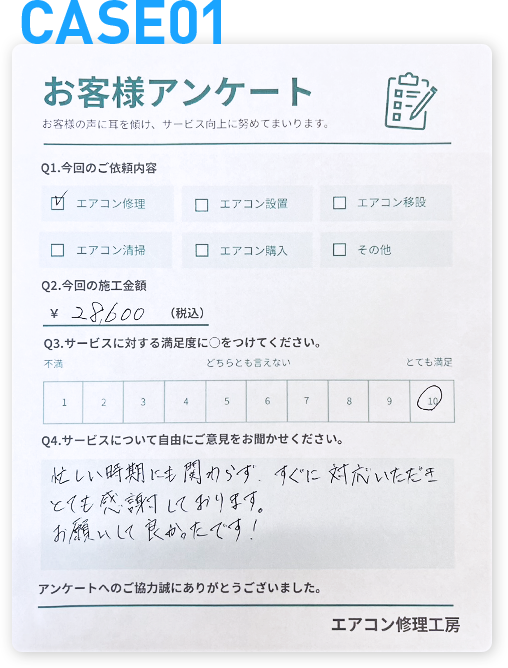 CASE01
お客様アンケート
お客様の声に耳を傾け、サービス向上に努めてまいります。
Q1.今回のご依頼内容
エアコン修理 エアコン設置 エアコン移設
エアコン清掃 エアコン購入 その他
Q2.今回の施工金額
¥ 28,600 (税込)
Q3.サービスに対する満足度に○をつけてください。
不満 どちらとも言えない とても満足
1 2 3 4 5 6 7 8 9 10
Q4.サービスについて自由にご意見をお聞かせください。
忙しい時期にも関わらず、すぐに対応いただき
とても感謝しております。
お願いして良かったです!
アンケートへのご協力誠にありがとうございました。
エアコン修理工房